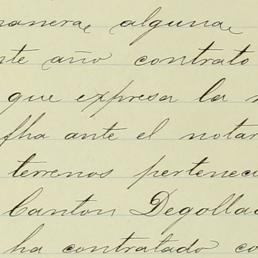 manera alguna
nte año contrato
que expresa la
fha ante el notar
terrenos pertenec
Canton Degolla
ha contratado co